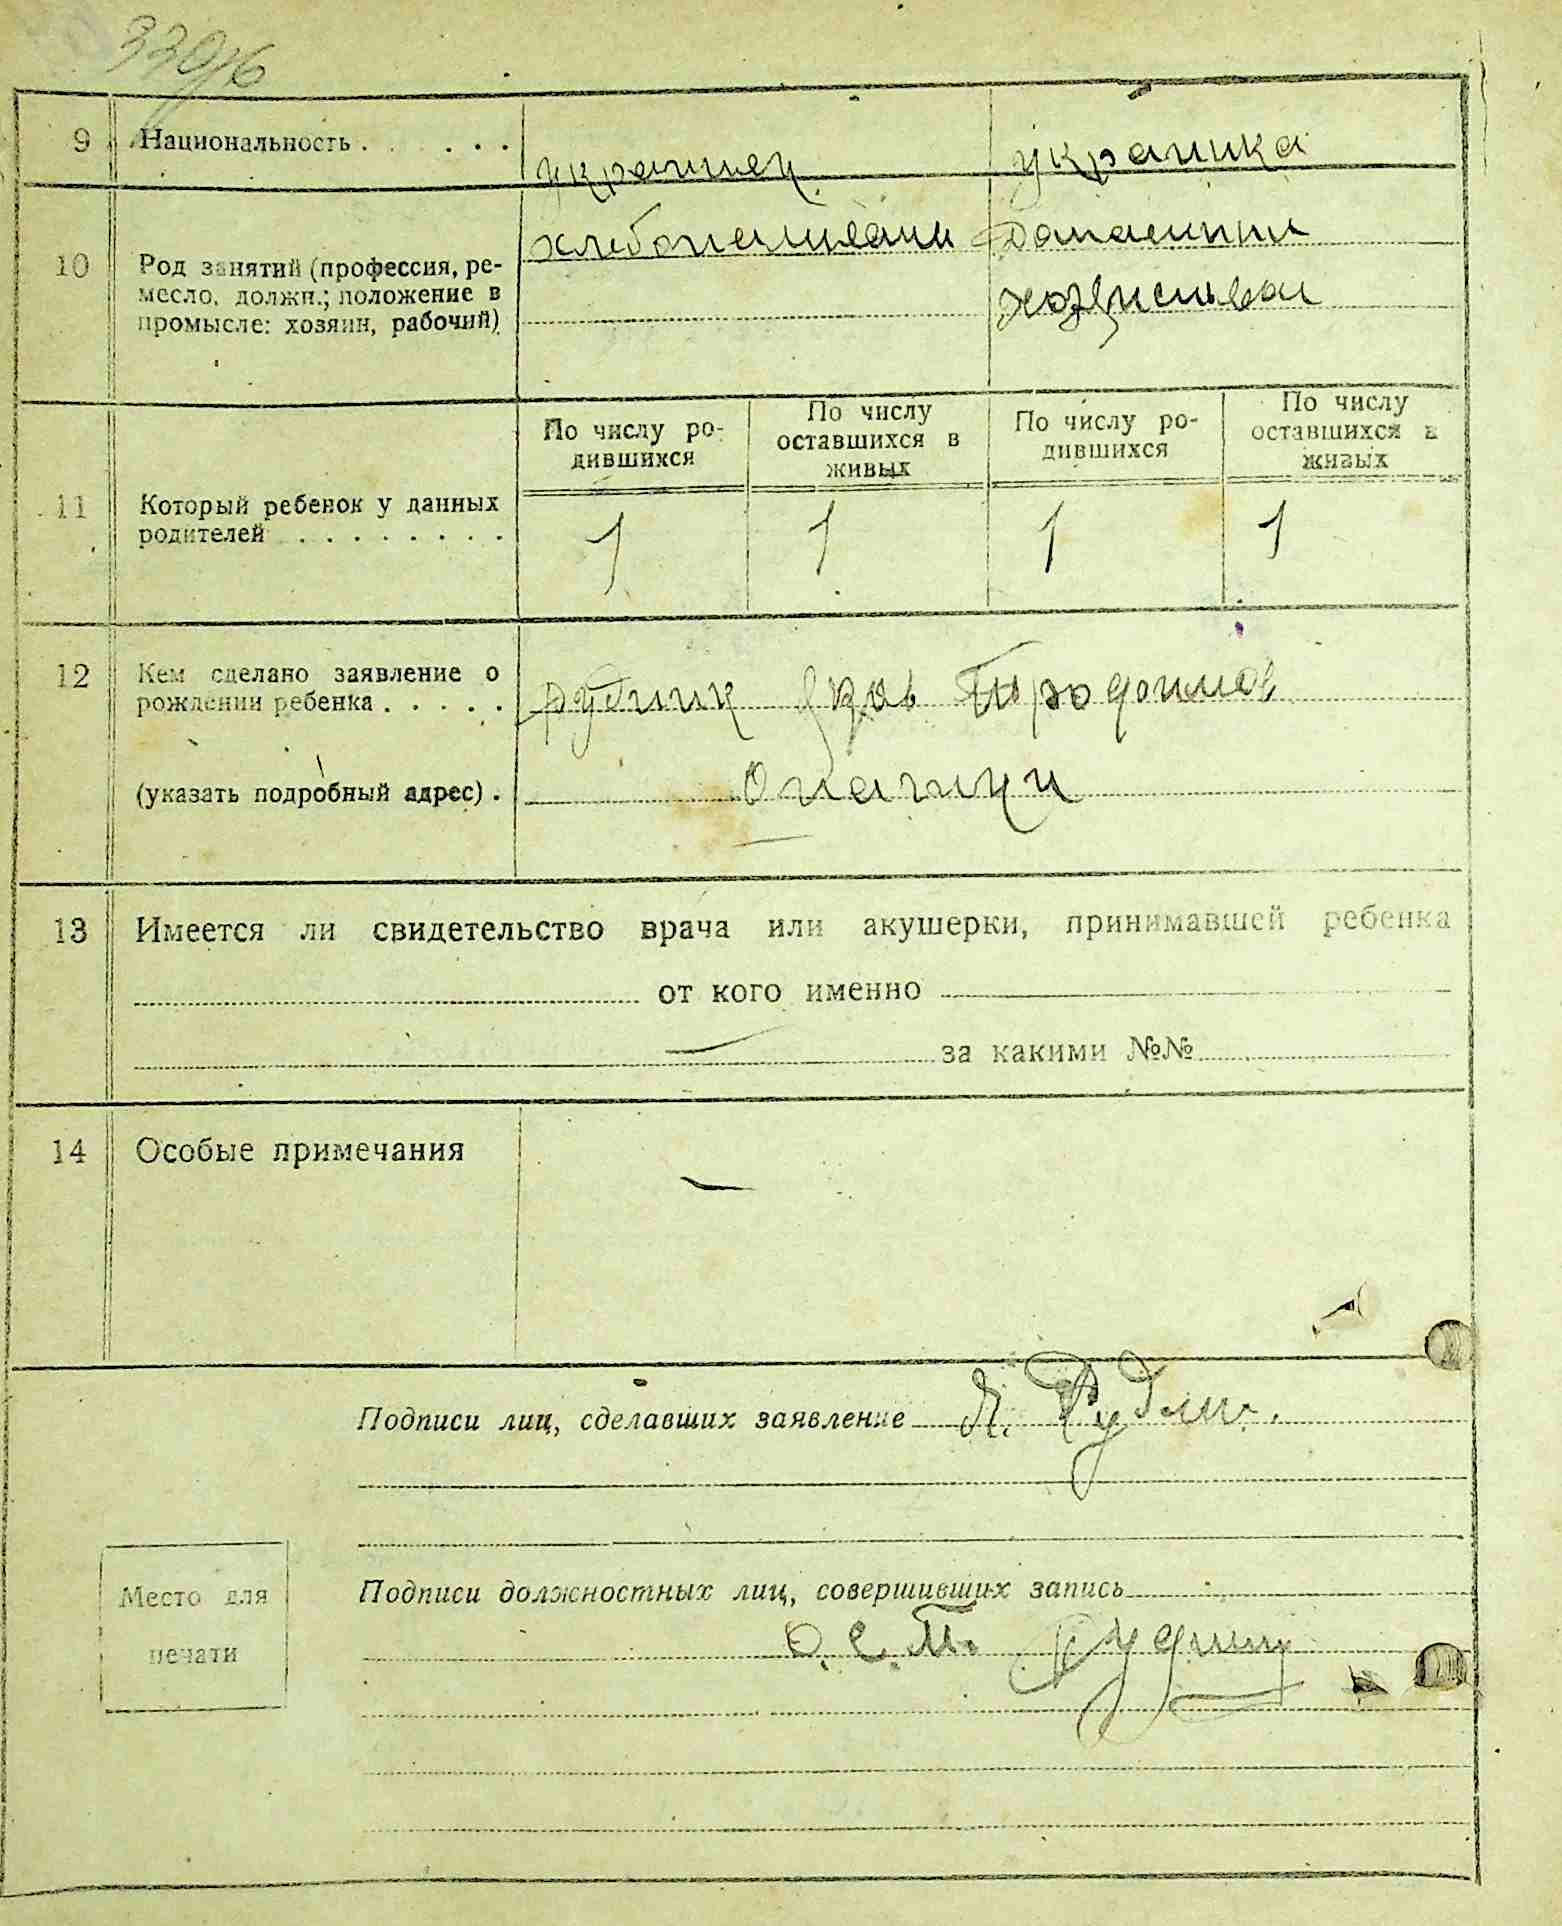 339/6
9 Национальность . . . . . . украинец украинка
10 Род занятий (профессия, ре-
месло, должн.; положение в
промысле: хозяин, рабочий)
хлебопашеством домашним
хозяйством
По числу ро-
дившихся
По числу
оставшихся в
живых
По числу ро-
дившихся
По числу
оставшихся в
живых
11 Который ребенок у данных
родителей . . . . . . . . .
1 1 1 1
12 Кем сделано заявление о
рождении ребенка . . . . .
Трофимов
(указать подробный адрес) .
13 Имеется ли свидетельство врача или акушерки, принимавшей ребенка
от кого именно
за какими №№
14 Особые примечания
Подписи лиц, сделавших заявление
Подписи должностных лиц, совершивших запись
Место для
печати